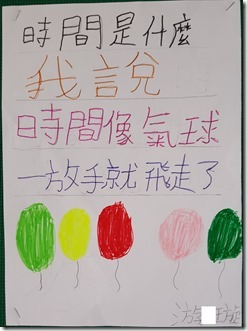 時間是什麼
我說
時間像氣球
一放手就飛走了